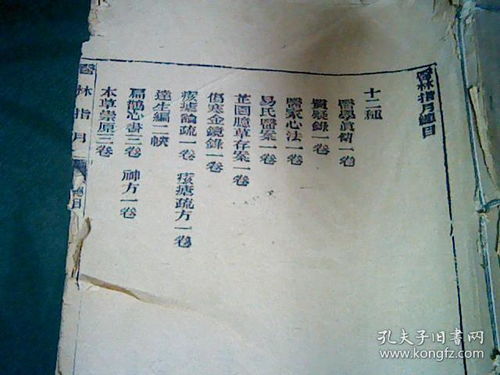 醫林指月總目
十二種
醫學眞傳一卷
質疑錄一卷
醫家心法一卷
易氏醫案一卷
芷園臆草存案一卷
傷寒金鏡錄一卷
痎瘧論疏一卷　痎瘧疏方一卷
達生編二帙
扁鵲心書三卷　神方一卷
本草崇原三卷
醫林指月
總目
孔夫子旧书网
www.kongfz.com